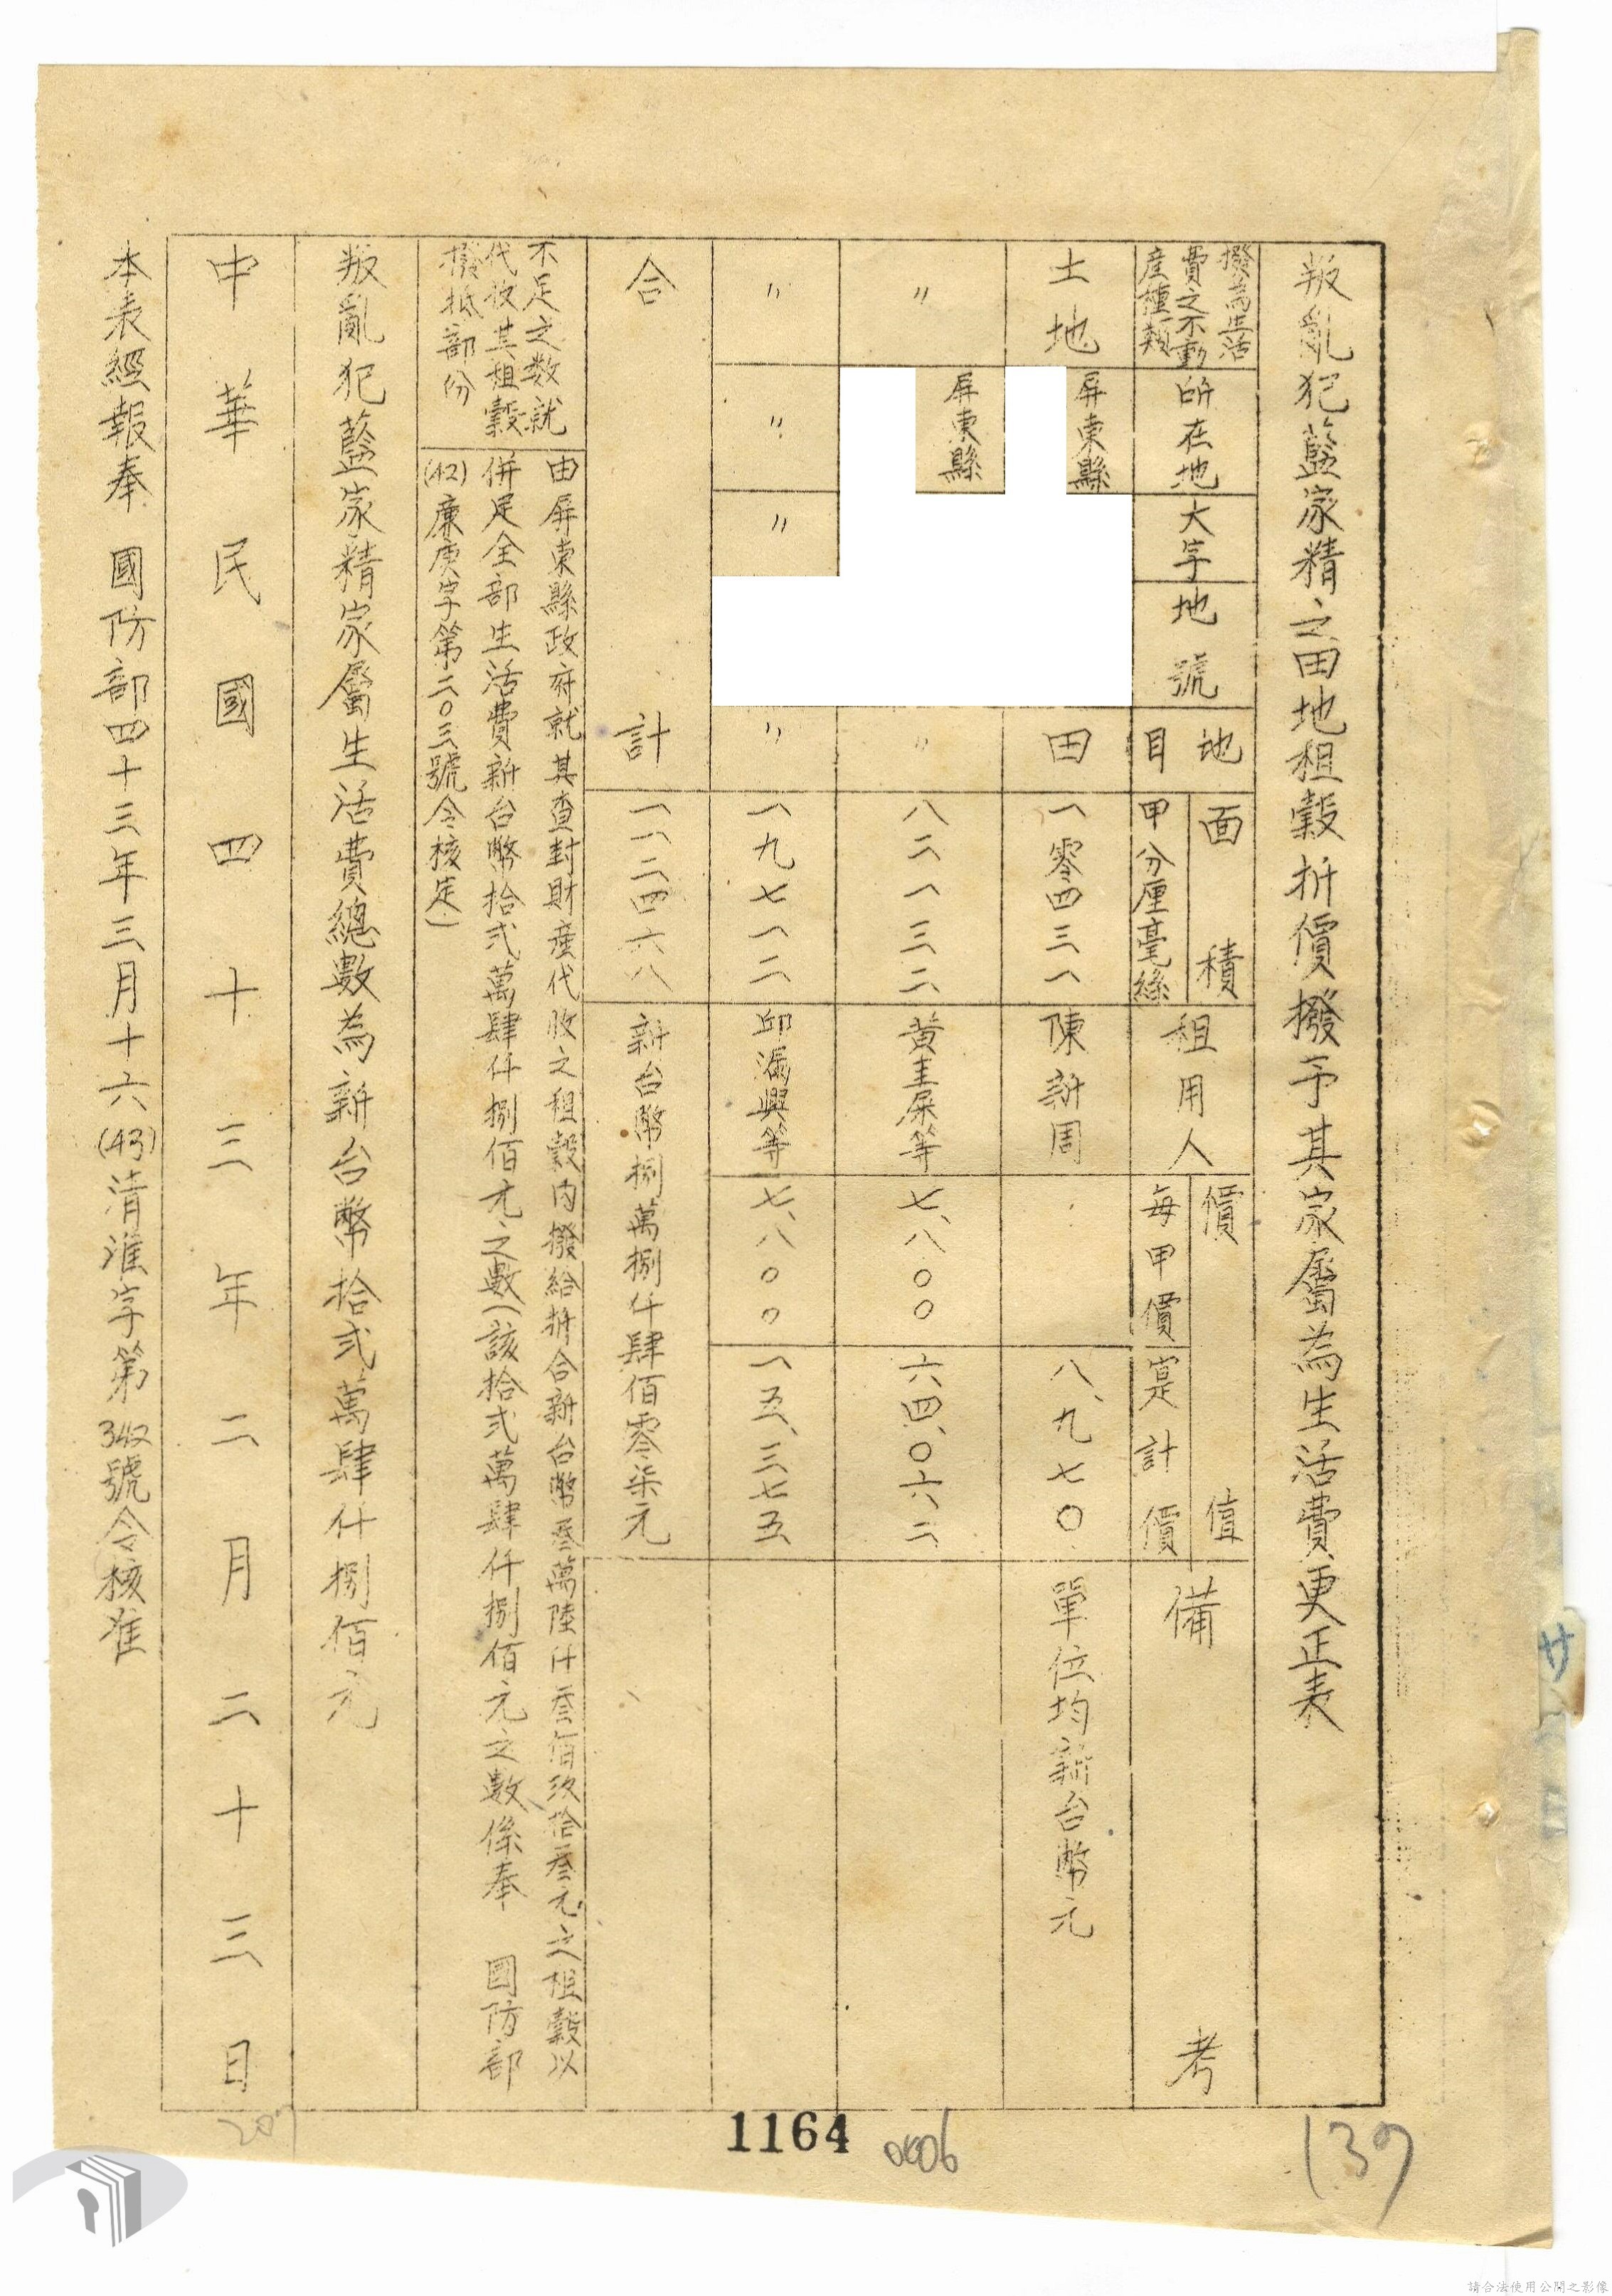 叛亂犯藍家精之田地租穀折價撥予其家屬為生活費更正表
撥為生活費之不動產種類
所在地
大字
地號
地目
面積
甲分厘毫絲
租用人
價值
每甲價
實計價
備考
土地
屏東縣
田
一零四三一
陳新周
八、九七〇
單位均新台幣元
〃
屏東縣
〃
八二一三二
黃圭屎等
七、八〇〇
六四、〇六二
〃
〃
〃
〃
一九七一二
邱滿興等
七、八〇〇
一五、三七五
合計
一一二四六八
新台幣捌萬捌仟肆佰零柒元
不足之数就
代收其租穀
撥抵部份
由屏東縣政府就其查封財產代收之租穀內撥給折合新台幣叁萬陸仟叁佰玖拾叁元之租穀以
併足全部生活費新台幣拾弍萬肆仟捌佰元之數(該拾弍萬肆仟捌佰元之數係奉 國防部
(42)廉庚字第二〇三號令核定)
叛亂犯藍家精家屬生活費總數為新台幣拾弍萬肆仟捌佰元
中華民國四十三年二月二十三日
本表經報奉 國防部四十三年三月十六(43)清淮字第342號令核准
1164
0406
139
207
廿
請合法使用公開之影像